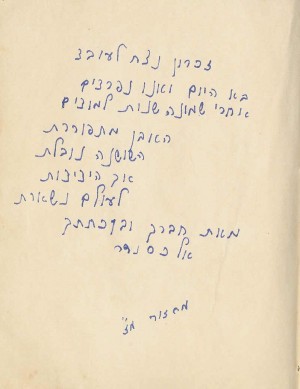 זכרון נצח לעובד
בא היום ואנו נפרדים
אחרי שמונה שנות למודים
האבן מתפוררת
השושנה נובלת
אך הידידות
לעולם נשארת
מאת חברך ובן כתתך
אלכסנדר
מחזור מז"